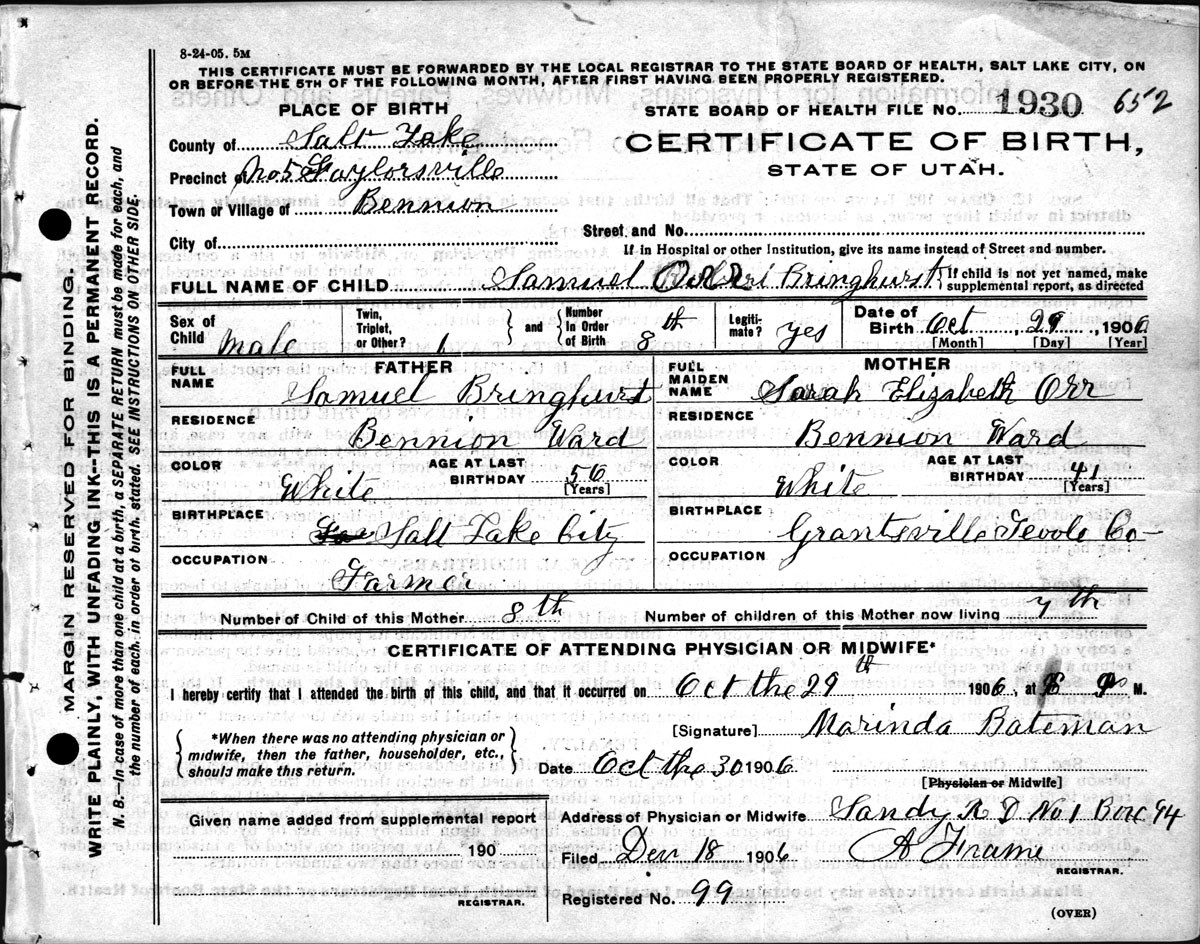 8-24-05. 5M
THIS CERTIFICATE MUST BE FORWARDED BY THE LOCAL REGISTRAR TO THE STATE BOARD OF HEALTH, SALT LAKE CITY, ON
OR BEFORE THE 5TH OF THE FOLLOWING MONTH, AFTER FIRST HAVING BEEN PROPERLY REGISTERED.
PLACE OF BIRTH
STATE BOARD OF HEALTH FILE No. 1930 652
County of Salt Lake
CERTIFICATE OF BIRTH,
STATE OF UTAH.
Precinct of No 5 Taylorsville
Town or Village of Bennion
City of
Street and No.
If in Hospital or other Institution, give its name instead of Street and number.
FULL NAME OF CHILD Samuel Bringhurst
If child is not yet named, make
supplemental report, as directed
Sex of
Child Male
Twin,
Triplet,
or Other? 1
and
Number
In Order
of Birth 8th
Legiti-
mate? yes
Date of
Birth Oct 29, 1906
[Month] [Day] [Year]
FATHER
FULL
NAME Samuel Bringhurst
RESIDENCE
Bennion Ward
COLOR White
AGE AT LAST
BIRTHDAY 56
[Years]
BIRTHPLACE
Salt Lake City
OCCUPATION
Farmer
MOTHER
FULL
MAIDEN
NAME Sarah Elizabeth Orr
RESIDENCE
Bennion Ward
COLOR White
AGE AT LAST
BIRTHDAY 41
[Years]
BIRTHPLACE
Grantsville Tevole Co
OCCUPATION
Number of Child of this Mother 8th
Number of children of this Mother now living 7th
CERTIFICATE OF ATTENDING PHYSICIAN OR MIDWIFE*
I hereby certify that I attended the birth of this child, and that it occurred on Oct the 29th 1906, at M.
*When there was no attending physician or
midwife, then the father, householder, etc.,
should make this return.
[Signature] Marinda Bateman
Date Oct the 30 1906
[Physician or Midwife]
Given name added from supplemental report
190
REGISTRAR.
Address of Physician or Midwife Sandy R D No 1 Box 94
Filed 18 1906 A Frame
REGISTRAR.
Registered No. 99
(OVER)
MARGIN RESERVED FOR BINDING.
WRITE PLAINLY, WITH UNFADING INK--THIS IS A PERMANENT RECORD.
N. B.—In case of more than one child at a birth, a SEPARATE RETURN must be made for each, and
the number of each, in order of birth, stated. SEE INSTRUCTIONS ON OTHER SIDE.